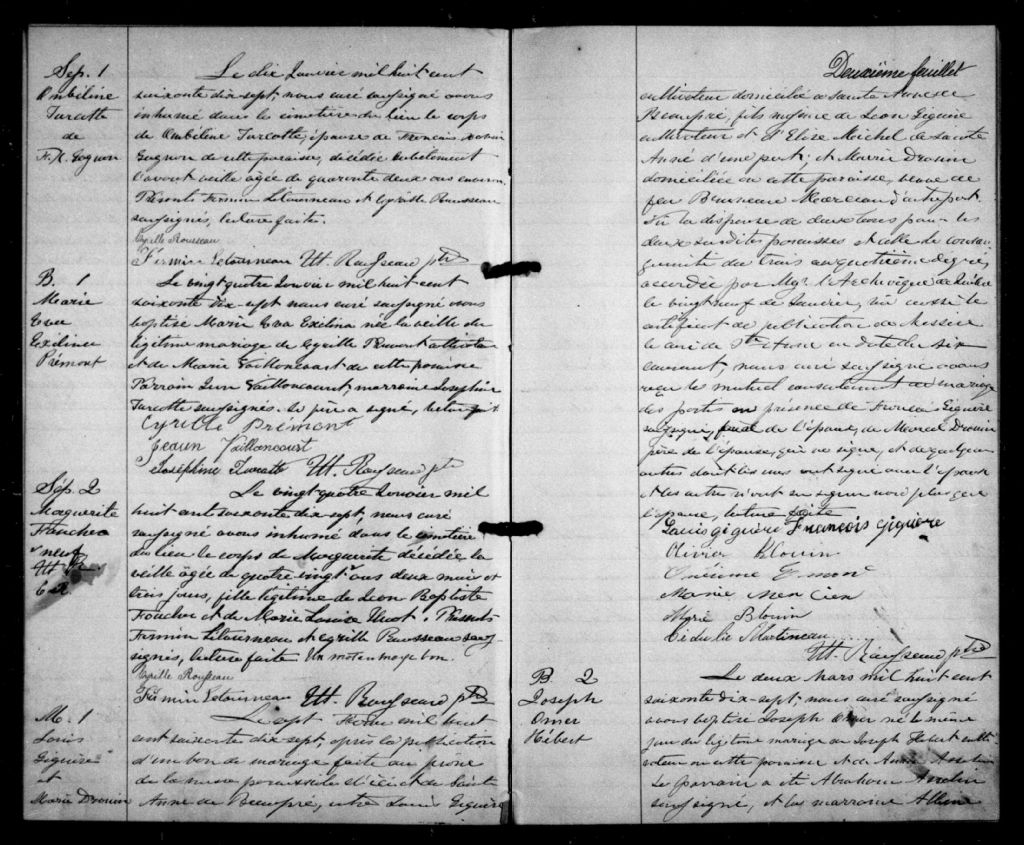 Sép. 1
Ombéline
Turcotte
de
F. X. Gagnon
Le dix Janvier mil huit cent
soixante dix-sept, nous curé soussigné avons
inhumé dans le cimetière du lieu le corps
de Ombéline Turcotte, épouse de François Xavier
Gagnon de cette paroisse, décédée subitement
l'avant veille âgée de quarante deux ans environ.
Présents Firmin Létourneau et Cyrille Rousseau
soussignés, lecture faite.
Cyrille Rousseau
Firmin Letourneau Ut. Rousseau ptre
B. 1
Marie
Eva
Exilina
Prémont
Le vingt quatre Janvier mil huit cent
soixante dix-sept nous curé soussigné avons
baptisé Marie Eva Exilina née la veille du
légitime mariage de Cyrille Prémont
et de Marie Vaillancourt de cette paroisse
Parrain Jean Vaillancourt, marraine Joséphine
Turcotte soussignés. Le père a signé, lecture faite
Cyrille Prémont
Jean Vaillancourt
Joséphine Turcotte Ut. Rousseau ptre
Sép. 2
Marguerite
Foucher
Le vingt quatre Janvier mil
huit cent soixante dix-sept, nous curé
soussigné avons inhumé dans le cimetière
du lieu le corps de Marguerite décédée la
veille âgée de quatre vingt ans deux mois et
trois jours, fille légitime de Jean Baptiste
Foucher et de Marie Louise. Présents
Firmin Létourneau et Cyrille Rousseau sous-
signés, lecture faite. Un mot en marge bon.
Cyrille Rousseau
Firmin Letourneau Ut. Rousseau ptre
M. 1
Louis
Giguère
et
Marie Drouin
Le sept mil huit
cent soixante dix-sept, après la publication
d'un ban de mariage faite au prône
de la messe paroissiale d'ici et de Sainte
Anne de Beaupré, entre Louis Giguère
Deuxième feuillet
cultivateur domicilié à Sainte Anne de
Beaupré, fils majeur de Léon Giguère
cultivateur et d'Elise Michel de Sainte
Anne d'une part; et Marie Drouin
domiciliée en cette paroisse, veuve de
feu d'autre part.
Vu la dispense de deux bans pour les
deux susdites paroisses et celle de consan-
guinité du trois au quatrième degré,
accordée par Mgr l'Archevêque de Québec
le vingt neuf de Janvier, vu aussi le
certificat de publication de Messire
le curé de Ste Anne en date du six
courant, nous curé soussigné avons
reçu le mutuel consentement de mariage
des parties en présence de François Giguère
soussigné, de l'époux, de Marcel Drouin
père de l'épouse, qui ne signe, et de quelques
autres dont les uns ont signé avec l'époux
et les autres n'ont su signer non plus que
l'épouse, lecture faite
Louis gèguère François Giguere
Olivier Blouin
Onésime
Marie Mercier
Blouin
Cédulie Martineau
Ut. Rousseau ptre
B 2
Joseph
Omer
Hébert
Le deux Mars mil huit cent
soixante dix-sept, nous curé soussigné
avons baptisé Joseph Omer né le même
jour du légitime mariage de Joseph Hébert culti-
vateur en cette paroisse et de
Le parrain a été Abraham
soussigné, et la marraine